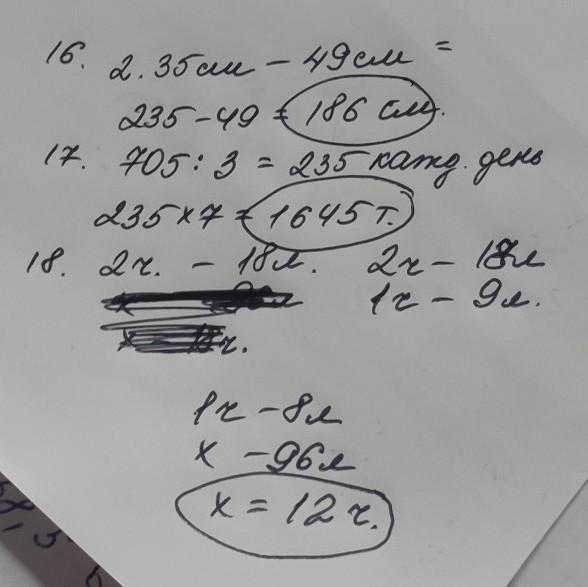 16. 2.35см - 49см =
235-49 = 186 см.
17. 705 : 3 = 235 кажд. день
235×7 = 1645 т.
18. 2ч. - 18л. 2ч - 18л
1ч - 9л.
1ч - 8л
x - 96л
x = 12 ч.